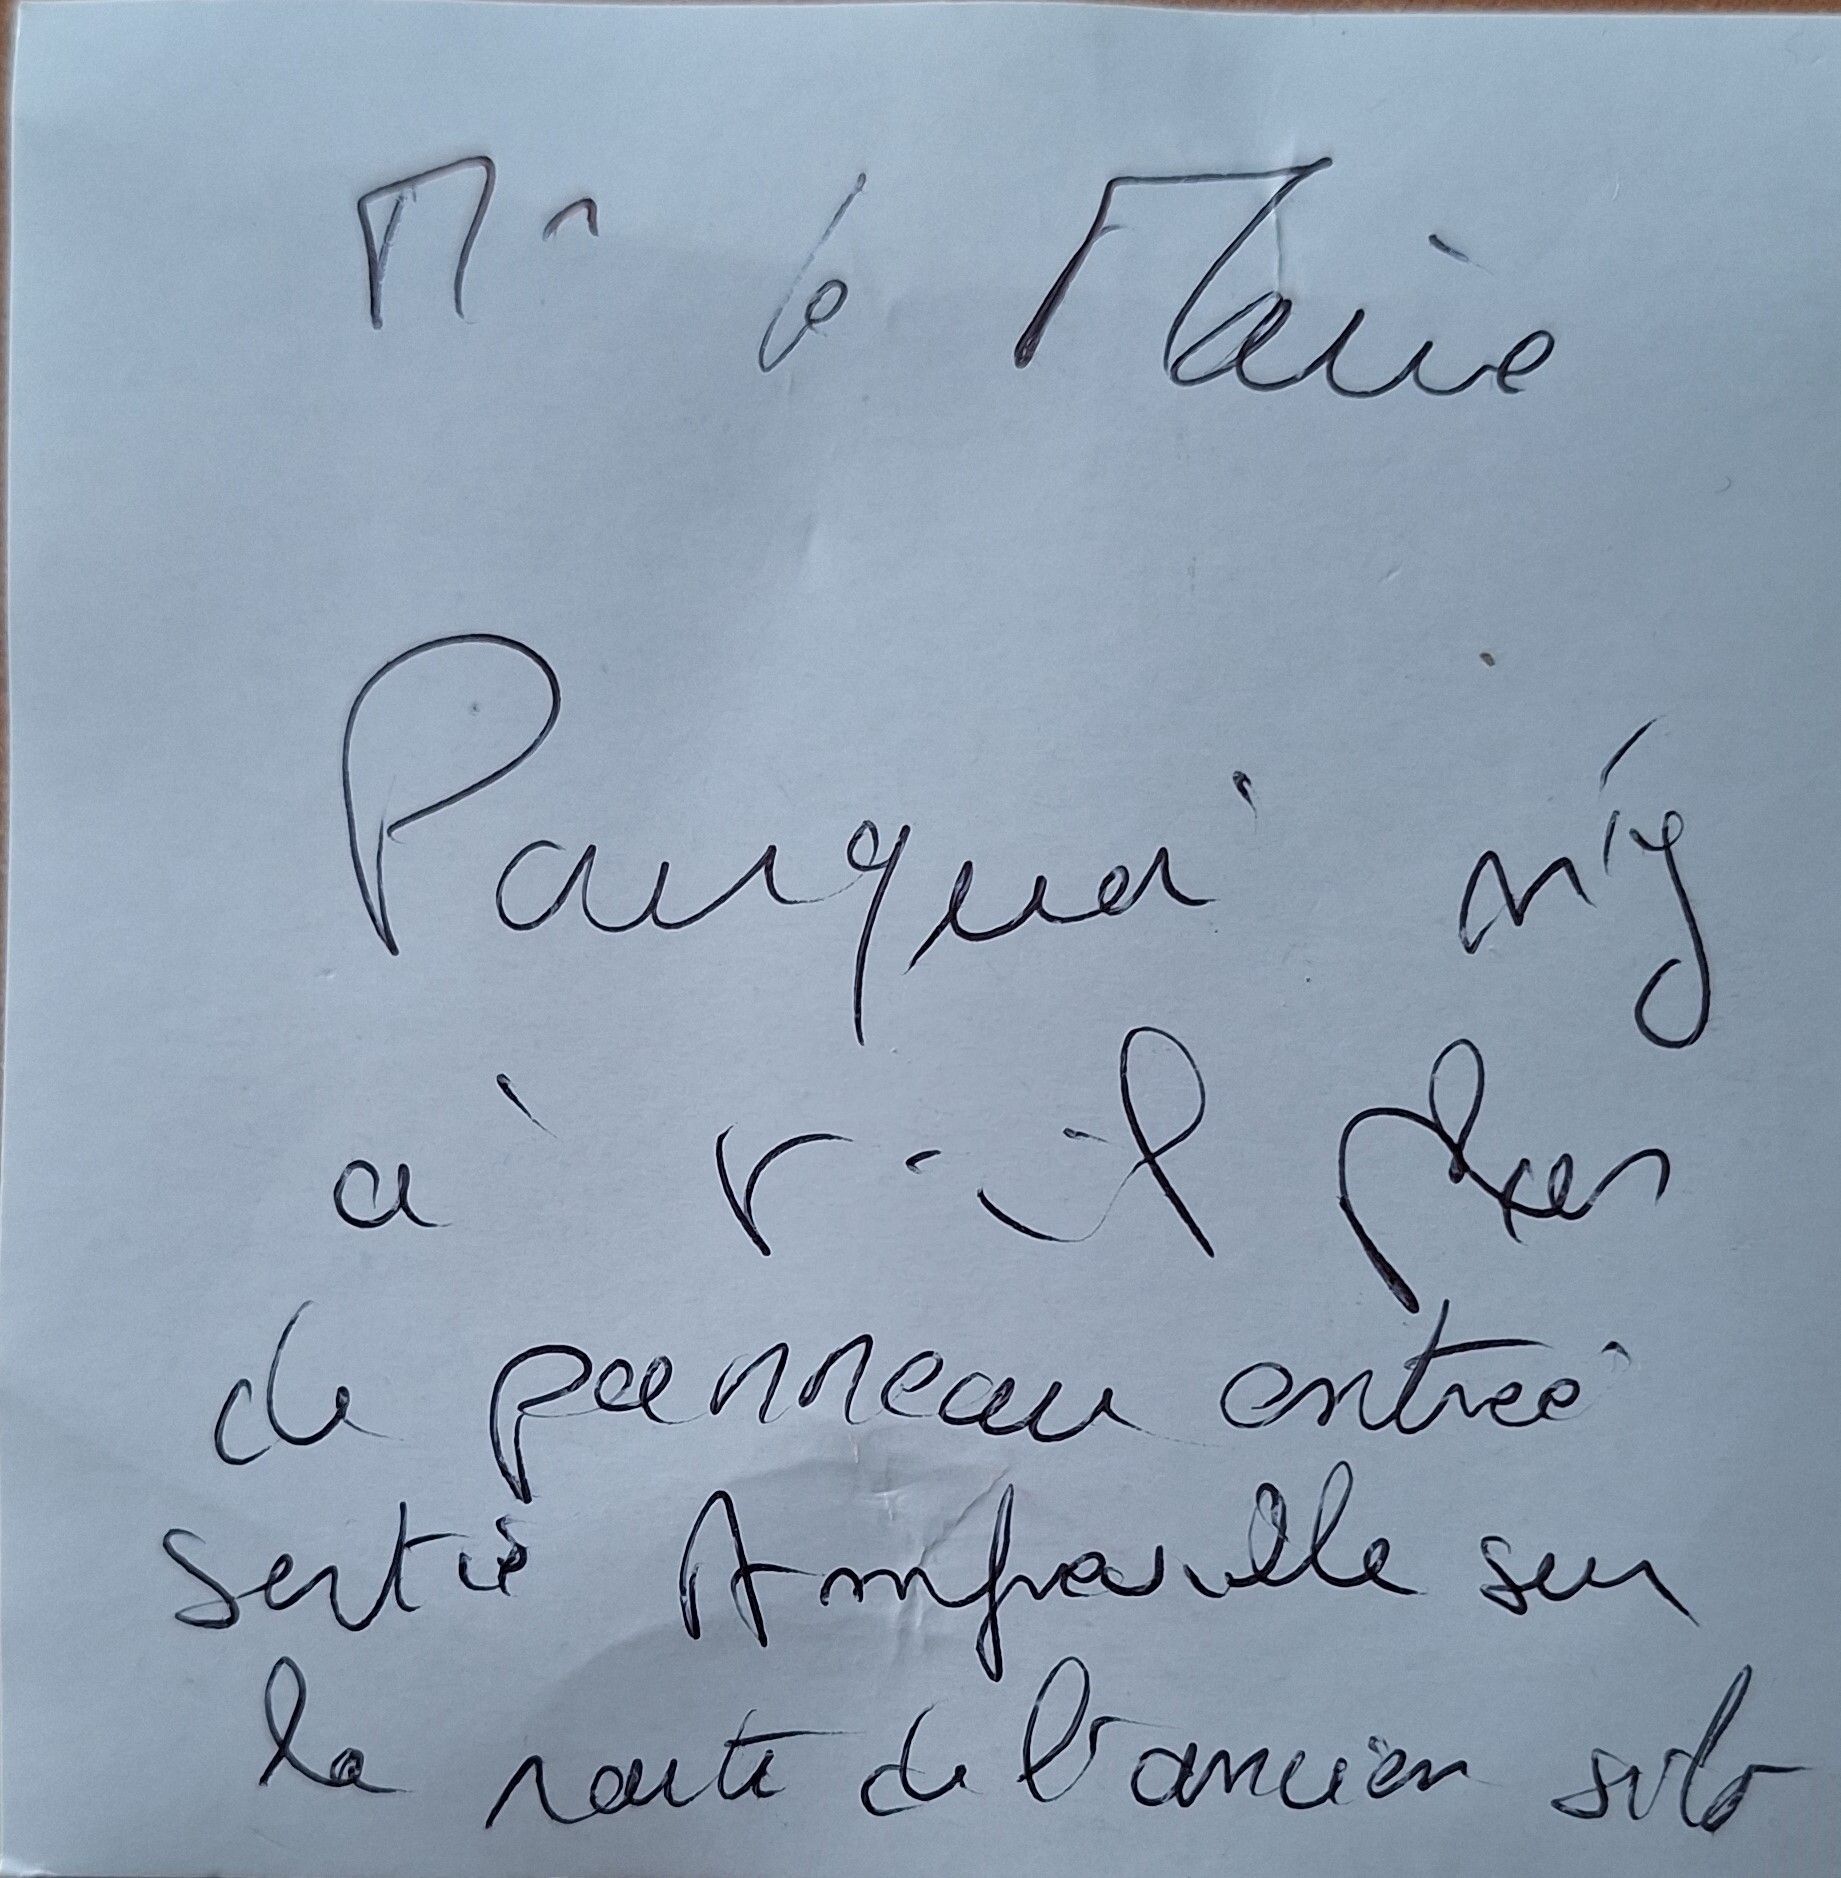 Mr le Maire
Pourquoi n'y
a t-il plus
de panneau entrée
sortie Amfreville sur
la route de l'ancien silo